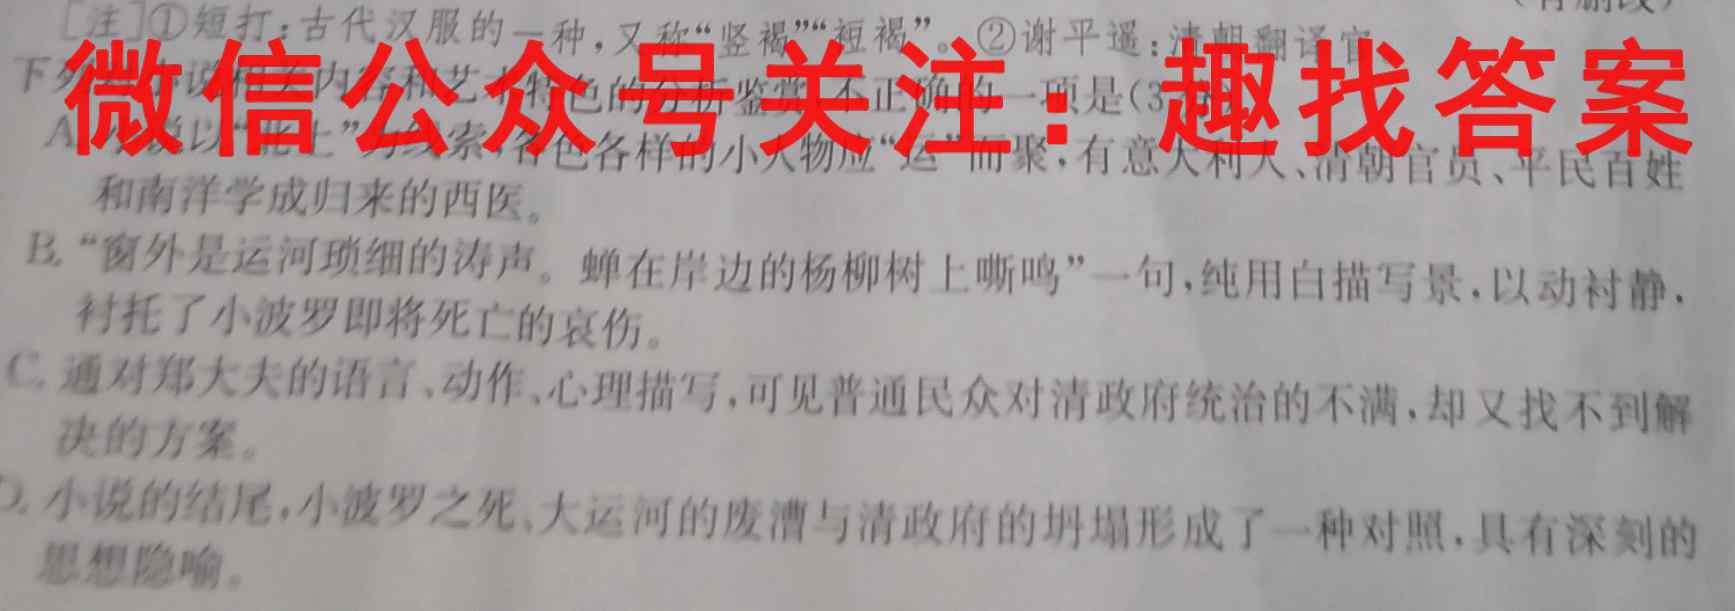 [注]①短打:古代汉服的一种,又称“竖褐”“短褐”。②谢平遥:清朝翻译官
微信公众号关注:趣找答案
下列 小说相关内容和艺术特色的分析鉴赏,不正确的一项是(3
A. 小说以“北上”为线索,各色各样的小人物应“运”而聚,有意大利人、清朝官员、平民百姓
和南洋学成归来的西医。
B.“窗外是运河琐细的涛声。蝉在岸边的杨柳树上嘶鸣”一句,纯用白描写景,以动衬静,
衬托了小波罗即将死亡的哀伤。
C. 通对郑大夫的语言、动作、心理描写,可见普通民众对清政府统治的不满,却又找不到解
决的方案。
D. 小说的结尾,小波罗之死、大运河的废漕与清政府的坍塌形成了一种对照,具有深刻的
思想隐喻。